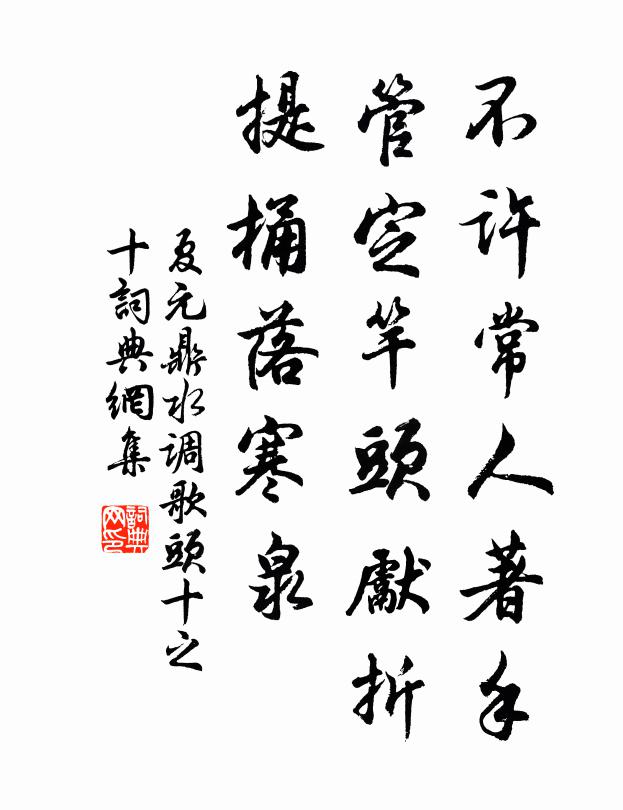 不許常人著手
管定竿頭獻折
提桶落寒泉
夏元鼎水调歌頭十之
十詞典網集
詞典网印